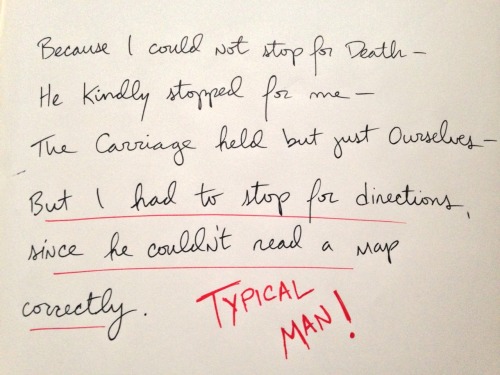 Because I could not stop for Death –
He kindly stopped for me –
The Carriage held but just Ourselves –
But I had to stop for directions,
since he couldn't read a map
correctly.
TYPICAL
MAN!